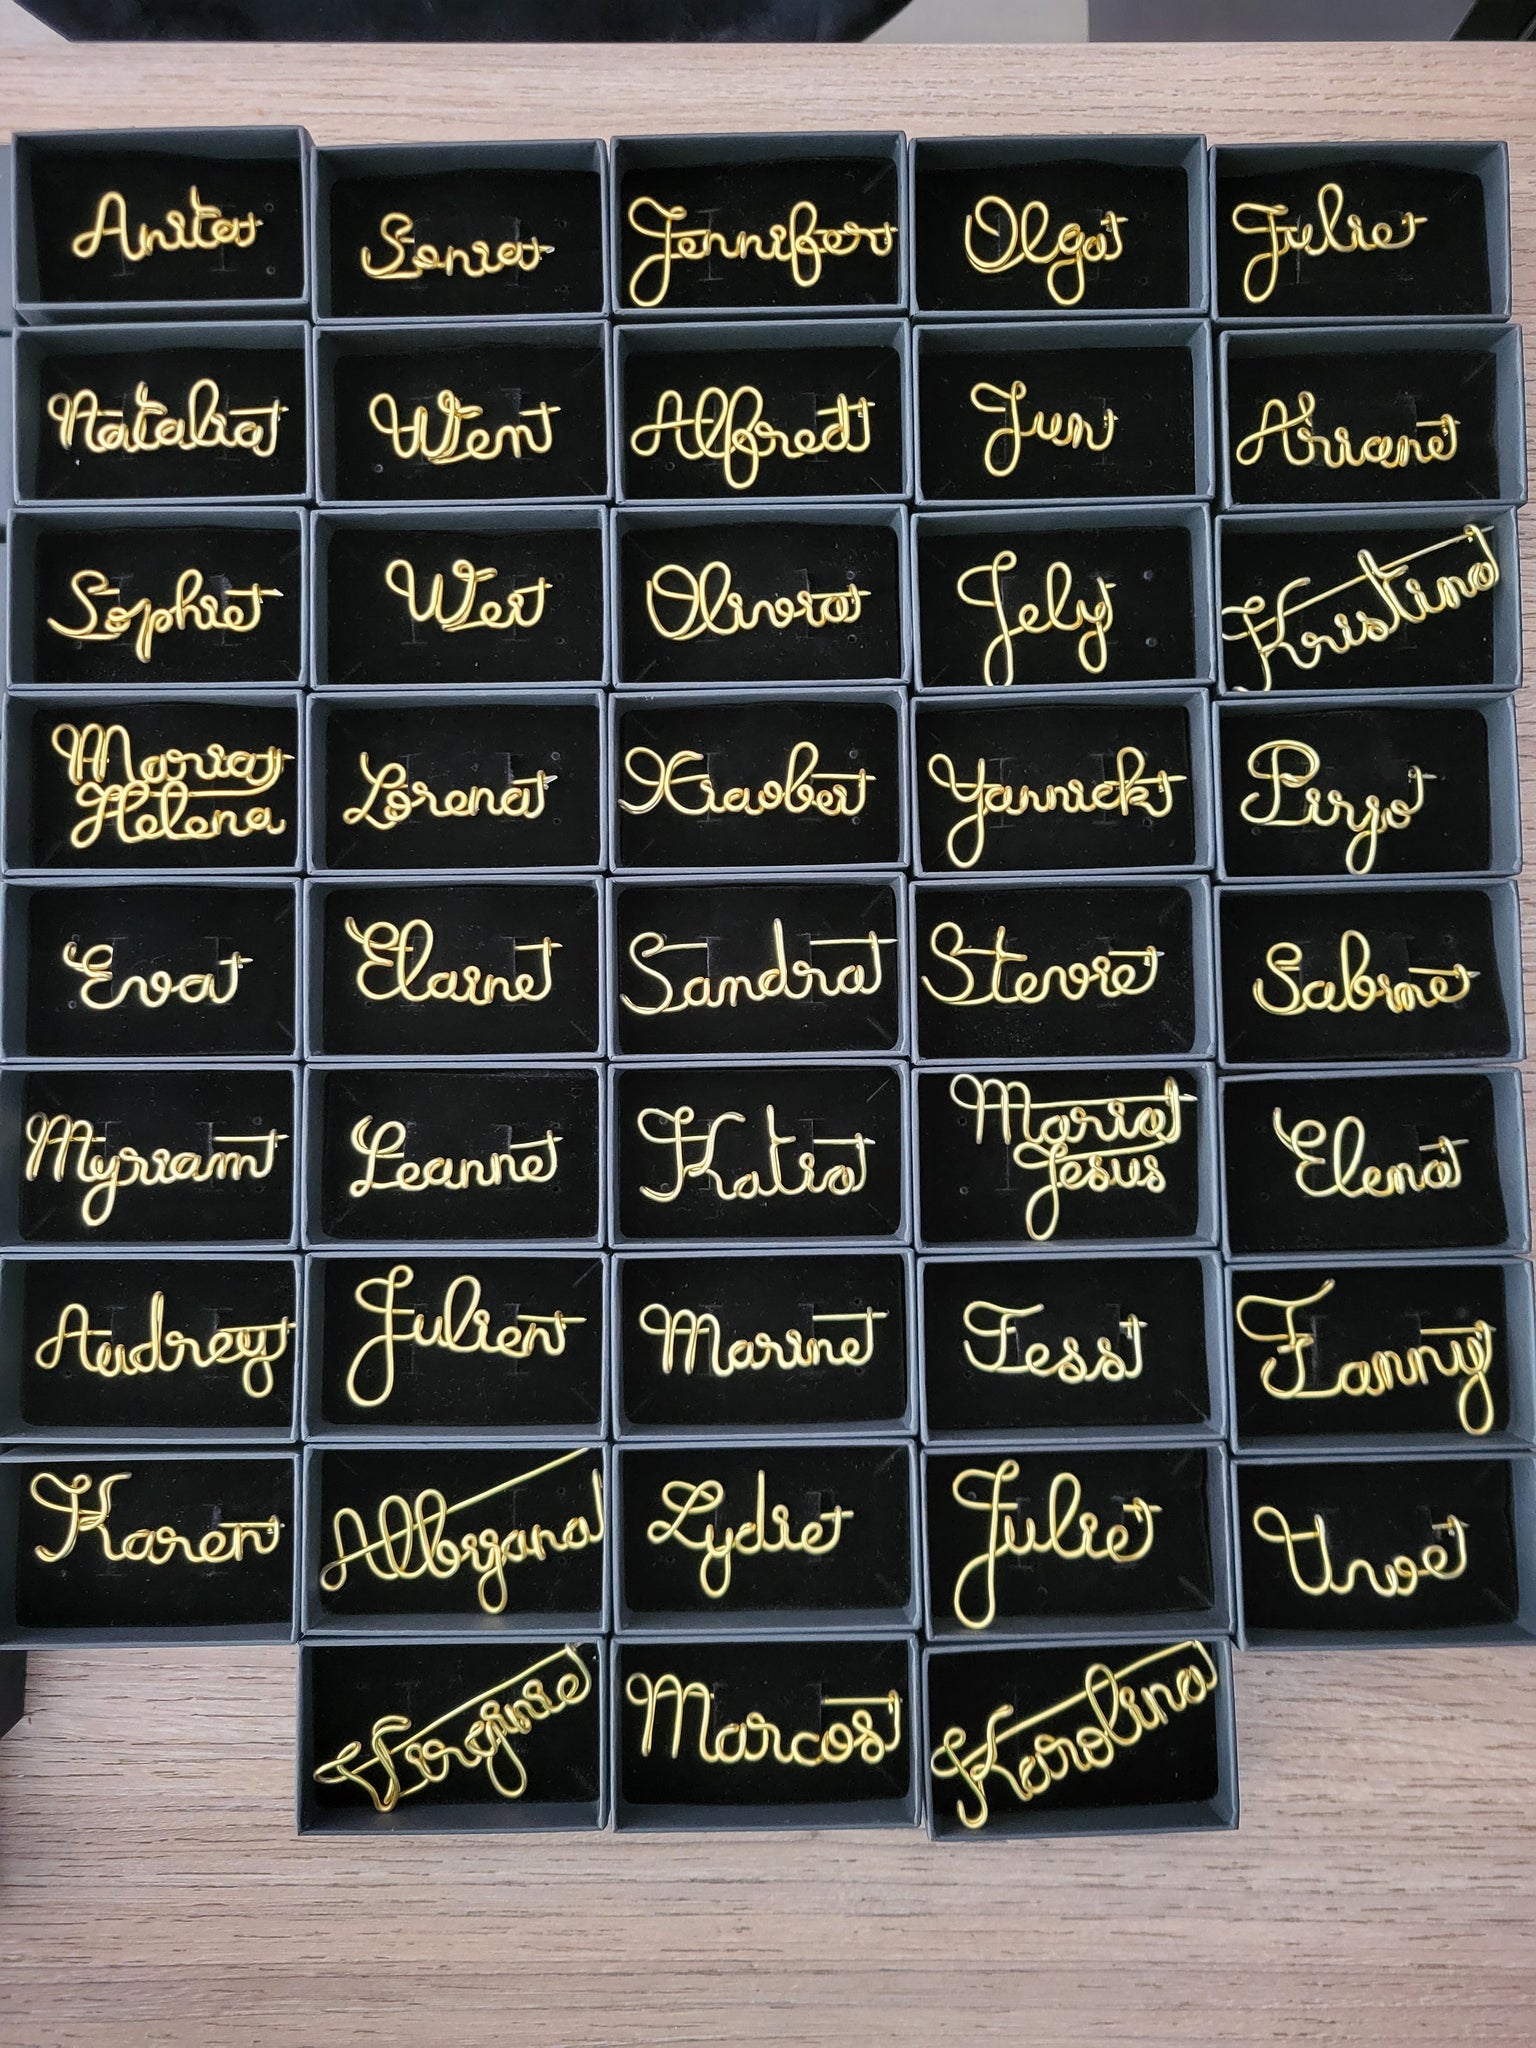 Anita
Sonia
Jennifer
Olga
Julie
Natalia
Wen
Alfred
Jun
Ariane
Sophie
Wei
Olivia
Jely
Kristina
Maria
Helena
Lorena
Xiaobei
Yannick
Pirjo
Eva
Elaine
Sandra
Stevie
Sabine
Myriam
Leanne
Katia
Maria
Jesus
Elena
Audrey
Julien
Marine
Tess
Fanny
Karen
Albyana
Lydie
Julie
Uwe
Virginie
Marcos
Karolina